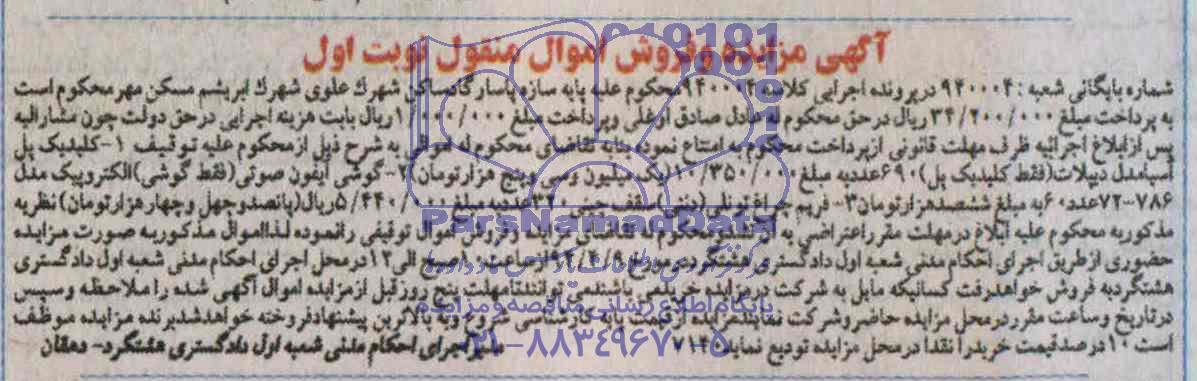 آگهی مزایده و فروش اموال منقول نوبت اول
شماره بایگانی شعبه: ۹۴۰۰۰۴ در پرونده اجرایی کلاسه ۹۴۰۰۰۴ محکوم علیه پایه سازه پاسارگاد ساکن شهرک علوی شهرک ابریشم مسکن مهر محکوم است
به پرداخت مبلغ ۳۴/۲۰۰/۰۰۰ ریال در حق محکوم له عادل صادق اوغلی و پرداخت مبلغ ۱/۰۰۰/۰۰۰ ریال بابت هزینه اجرایی در حق دولت چون مشارالیه
پس از ابلاغ اجرائیه ظرف مهلت قانونی از پرداخت محکوم به امتناع نموده بنابه تقاضای محکوم له اموالی به شرح ذیل از محکوم علیه توقیف ۱-کلیدیک پل
آسیا مدل دیپلات (فقط کلیدیک پل) ۶۹۰ عدد به مبلغ ۱۰/۳۵۰/۰۰۰ (یک میلیون و سی و پنج هزار تومان) ۲- گوشی آیفون صوتی (فقط گوشی) الکتروپیک مدل
۷۸۶-۷۲ عدد ۶۰ به مبلغ ششصد هزار تومان ۳- فریم چراغ تونلی سقف چینی ۳۲۰ عدد به مبلغ ۵/۴۴۰/۰۰۰ ریال (پانصد و چهل و چهار هزار تومان) نظریه
مذکور به محکوم علیه ابلاغ در مهلت مقرر اعتراضی به آن نشده محکوم له تقاضای مزایده و فروش اموال توقیفی را نموده لذا اموال مذکور به صورت مزایده
حضوری از طریق اجرای احکام مدنی شعبه اول دادگستری هشتگرد در مورخ ۹۴/۴/۹ از ساعت ۱۰ صبح الی ۱۲ در محل اجرای احکام مدنی شعبه اول دادگستری
هشتگرد به فروش خواهد رفت کسانیکه مایل به شرکت در مزایده حضوری باشند می توانند تا مهلت پنج روز قبل از مزایده اموال آگهی شده را ملاحظه و سپس
در تاریخ و ساعت مقرر در محل مزایده حاضر و شرکت نمایند مزایده از قیمت پایه کارشناسی شروع و به بالاترین پیشنهاد فروخته خواهد شد برنده مزایده موظف
است ۱۰ درصد قیمت خرید را نقدا در محل مزایده تودیع نماید
مدیر اجرای احکام مدنی شعبه اول دادگستری هشتگرد- دهقان
ParsNamadData
پایگاه اطلاع رسانی مناقصه و مزایده
۰۲۱-۸۸۳۴۹۶۷۰-۵